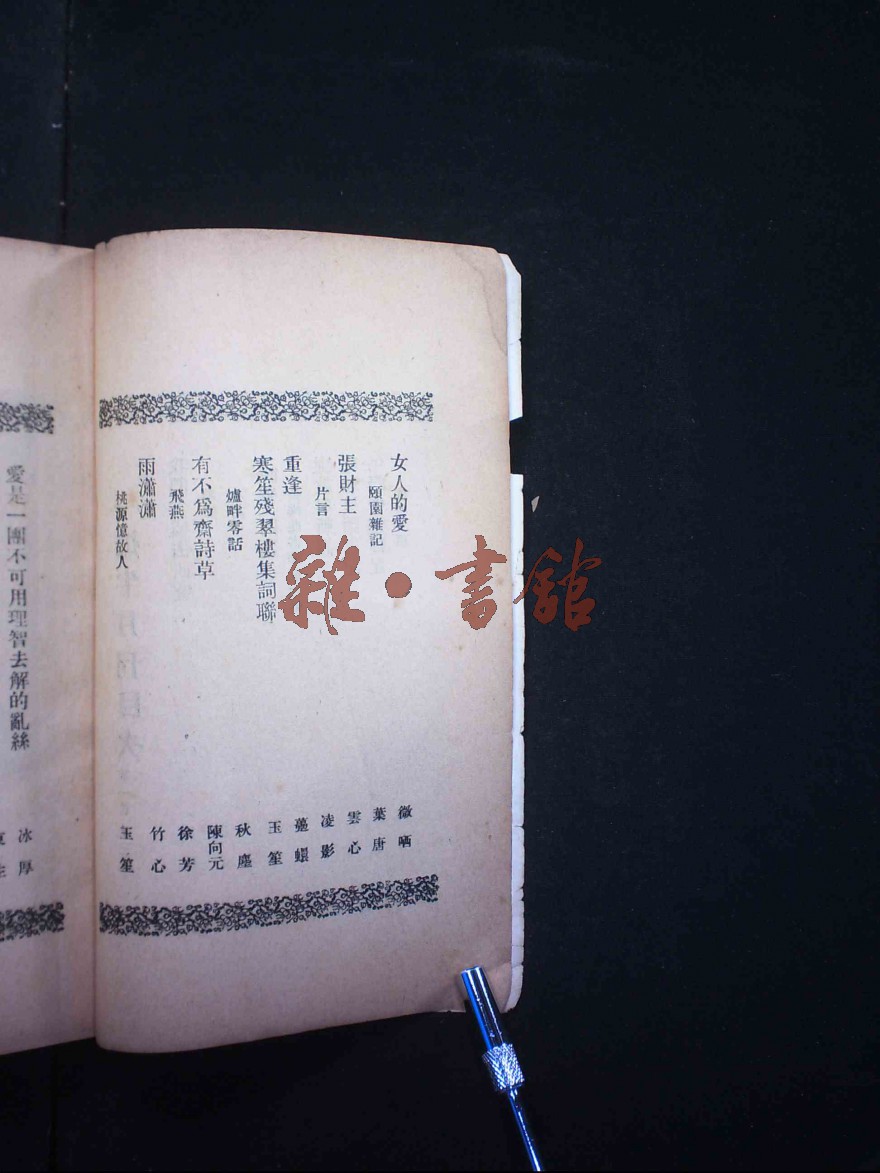 女人的愛 微哂
頤園雜記 葉唐
張財主 雲心
片言 凌影
重逢
寒笙殘翠樓集詞聯 玉笙
爐畔零話 秋塵
有不爲齋詩草 陳向元
飛燕 徐芳
雨瀟瀟 竹心
桃源憶故人 玉笙
愛是一團不可用理智去解的亂絲 冰厚
雜·書館